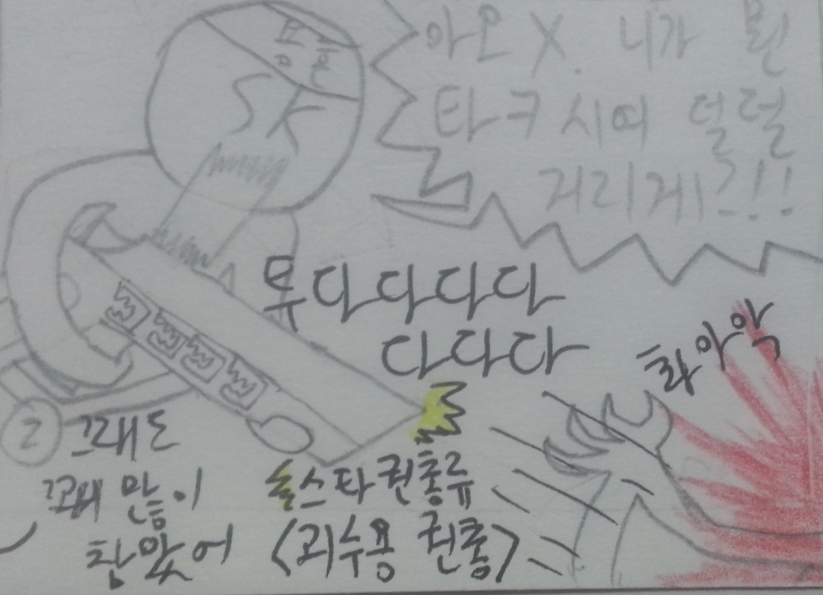 아오 X. 니가 뭔
타크시여 덜덜
거리게?!!
SK
투다다다다
다다다
화아악
② 그래도
꽤 많이
참았어
스타권총류
<괴수용 권총>